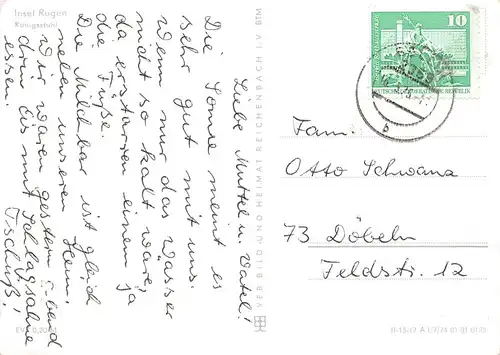 Insel Rügen
Königsstuhl
Liebe Mutti u. Vati!
Die Sonne meint es
sehr gut mit uns.
Wenn nur das Wasser
nicht so kalt wäre,
da erstarren einem ja
die Füße.
Die Milchbar ist gleich
neben unserem Heim,
wir waren gestern abend
drin Eis mit Schlagsahne
essen.
Tschüß!
VEB BILD UND HEIMAT REICHENBACH I. V. BTM
10
DEUTSCHE DEMOKRATISCHE REPUBLIK
Fam.
Otto Schwanz
73 Döbeln
Feldstr. 12